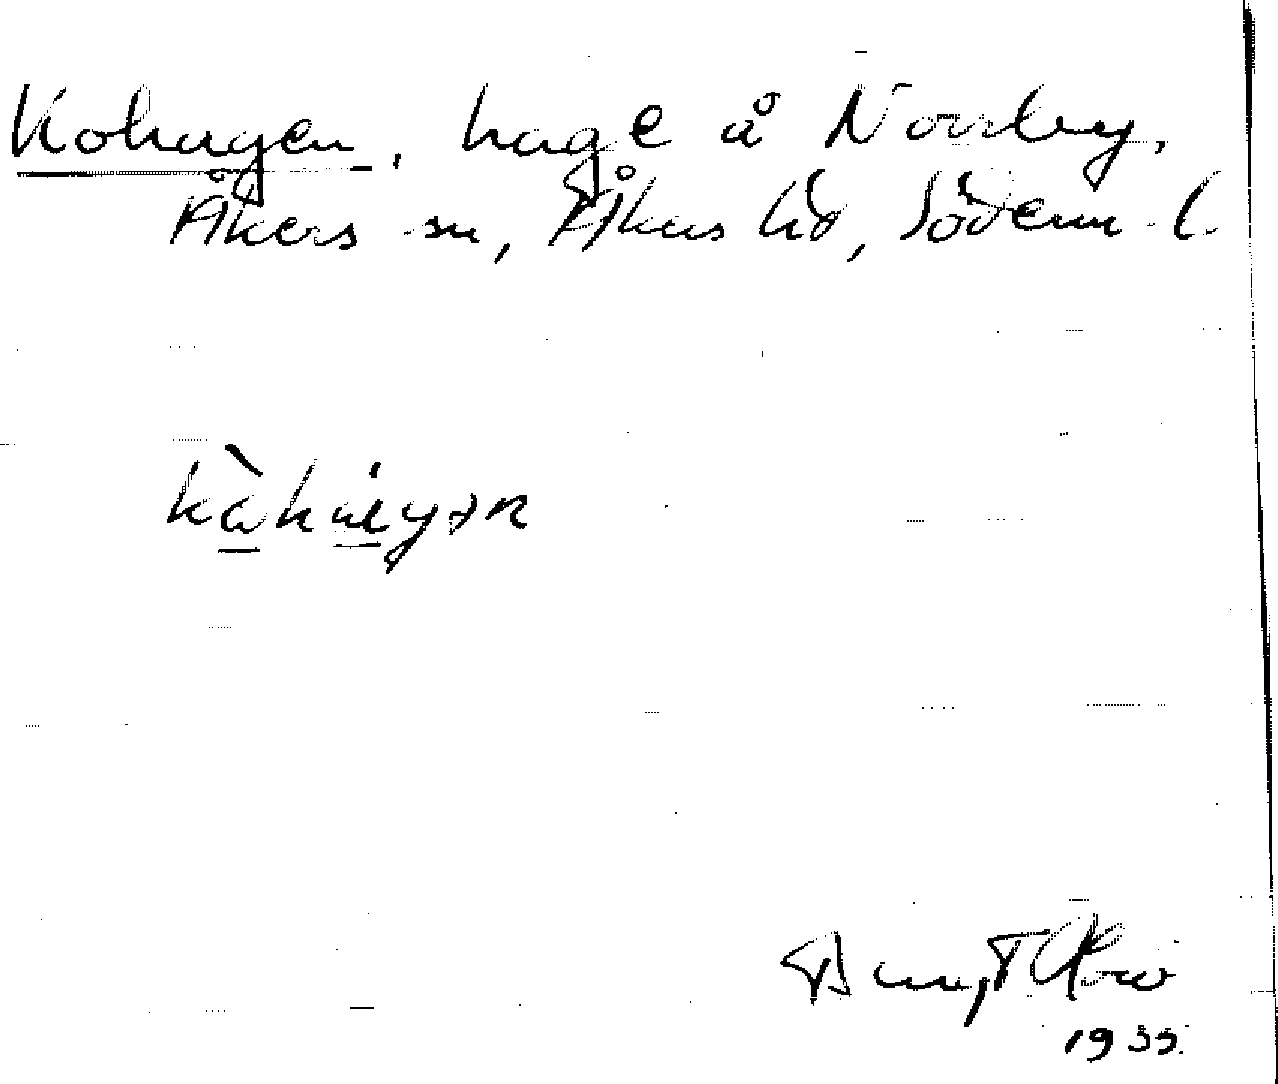 Kohagen, hage å Norrby,
Åkers sn, Åkers hd, Söderm. l.
kàhàgən
1935.